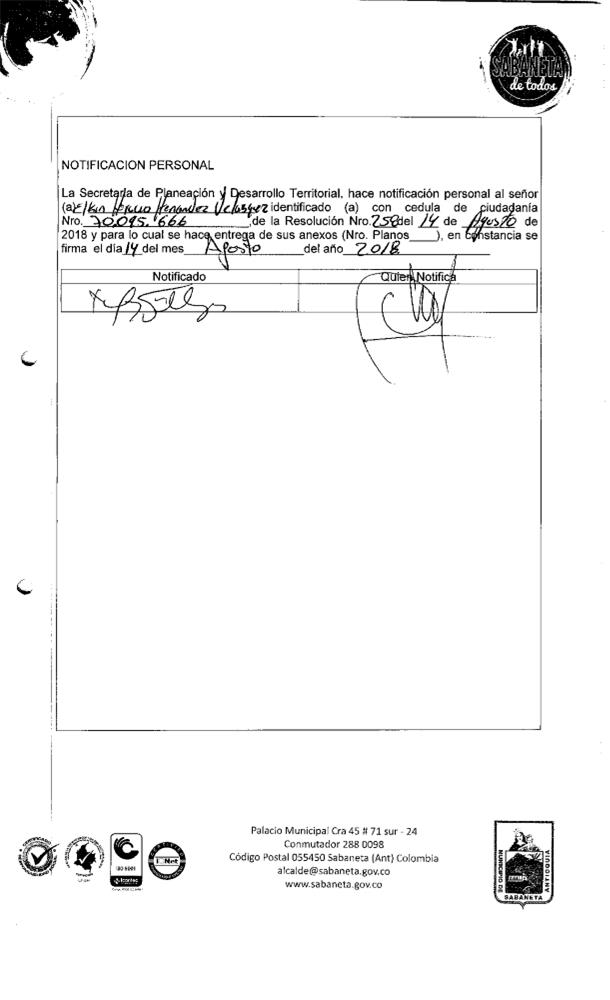 SABANETA
de todos
NOTIFICACION PERSONAL
La Secretaría de Planeación y Desarrollo Territorial, hace notificación personal al señor
(a) Elkin Hernandez Velasquez identificado (a) con cedula de ciudadanía
Nro. 70.095.666 ,de la Resolución Nro. 258 del 14 de Agosto de
2018 y para lo cual se hace entrega de sus anexos (Nro. Planos____), en constancia se
firma el día 14 del mes Agosto del año 2018
Notificado Quien Notifica
Palacio Municipal Cra 45 # 71 sur - 24
Conmutador 288 0098
Código Postal 055450 Sabaneta (Ant) Colombia
alcalde@sabaneta.gov.co
www.sabaneta.gov.co
ISO 9001
icontec
IQNet
MUNICIPIO DE
SABANETA
ANTIOQUIA